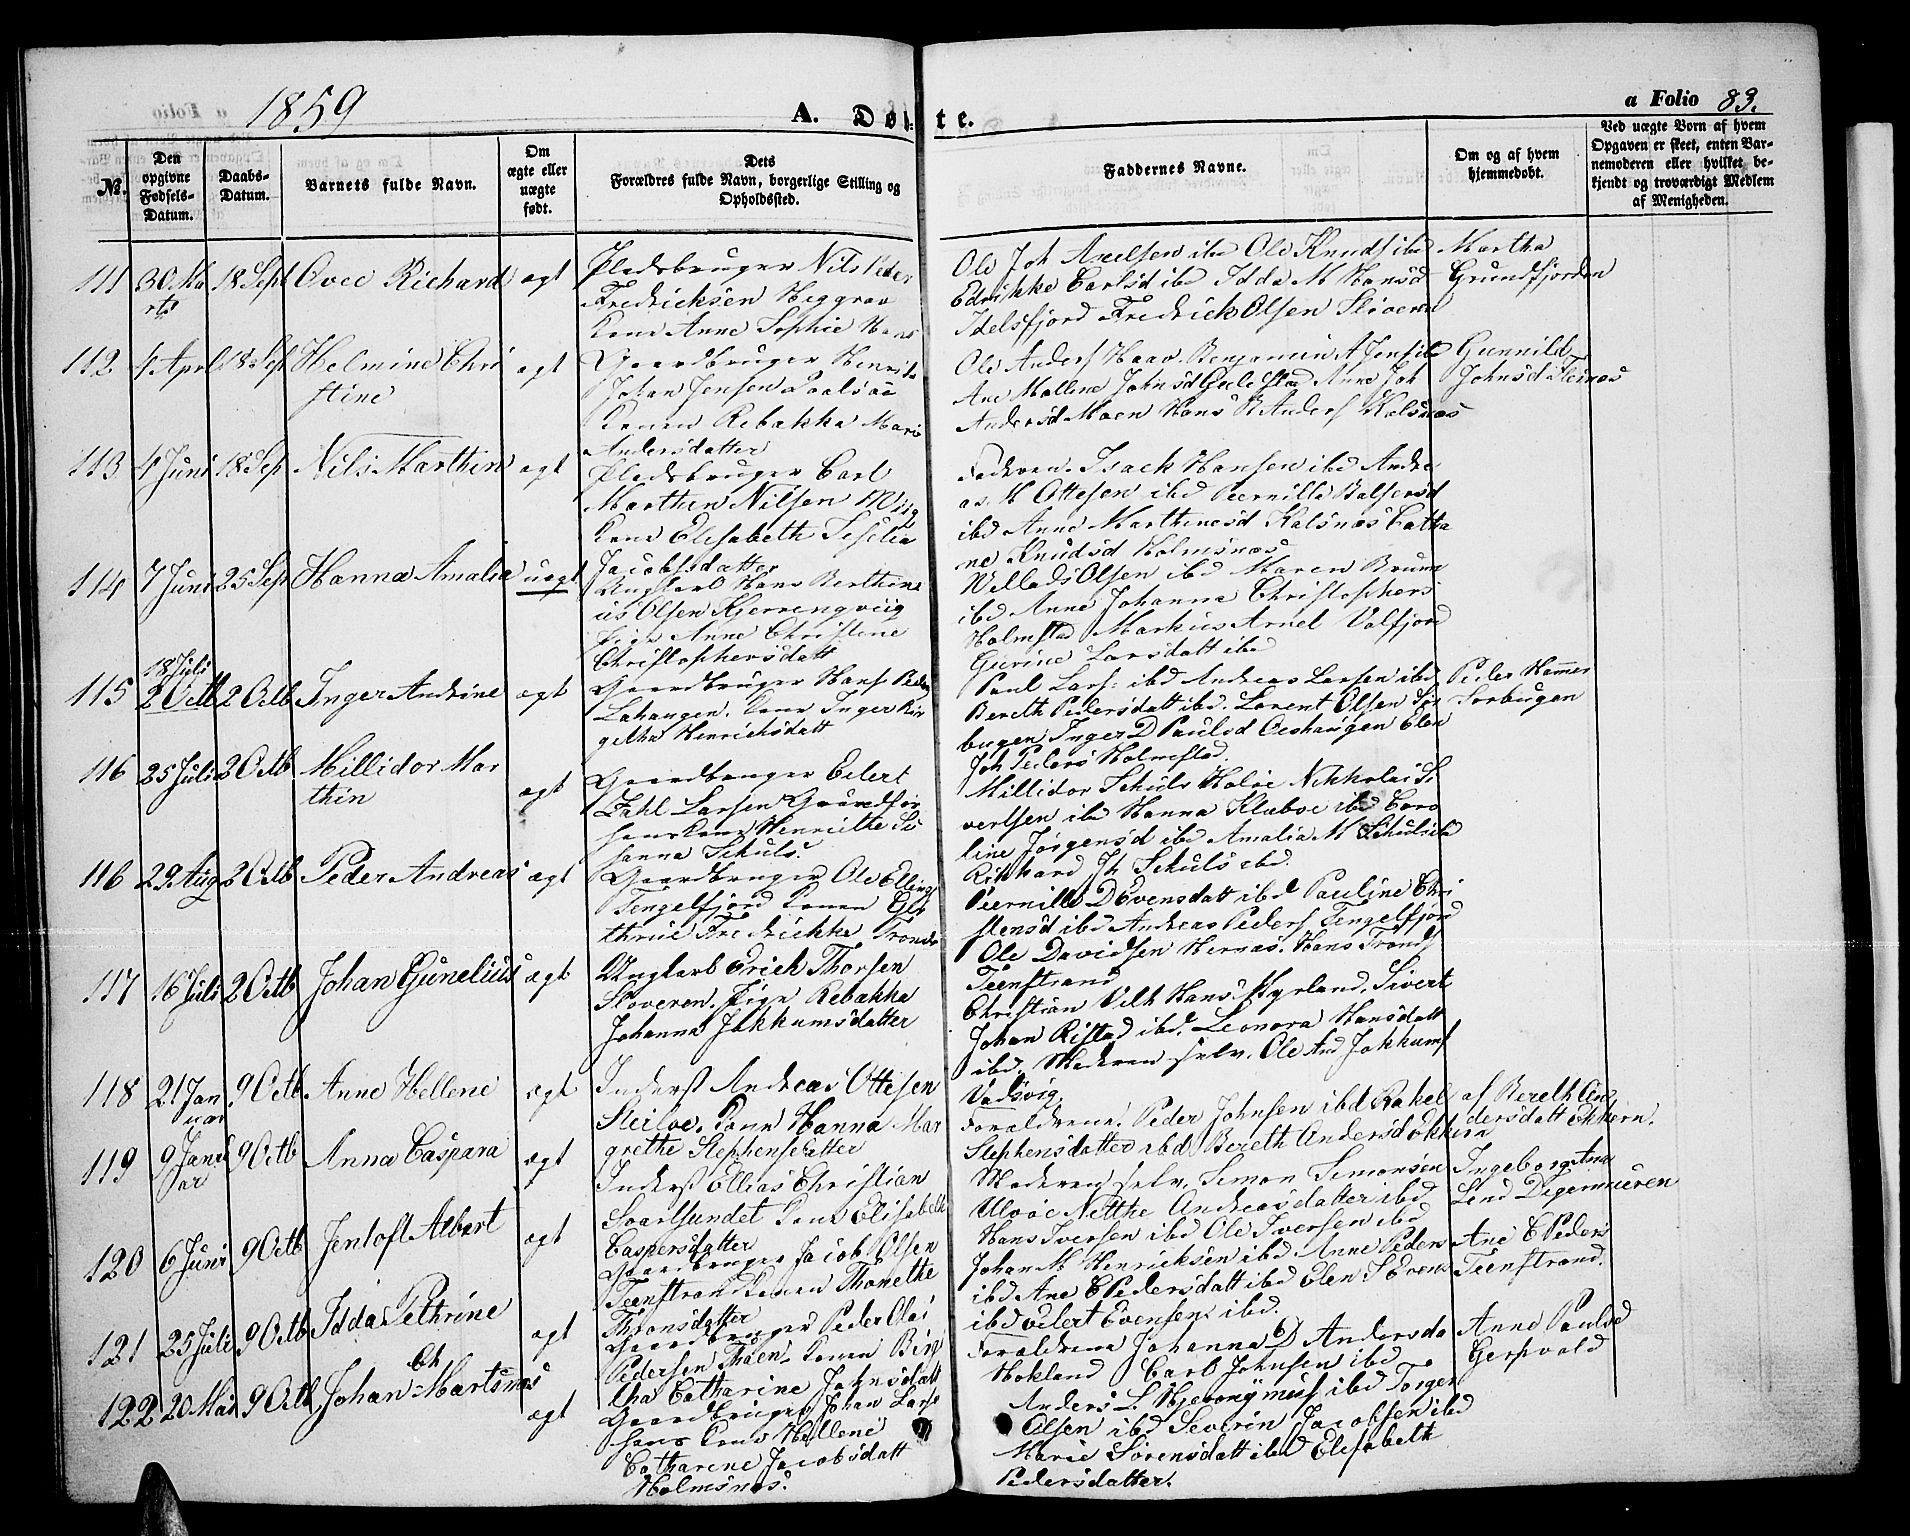 1859
A. Døbte.
a Folio 83.
No.
Den opgivne Fødsels-Datum.
Daabs-Datum.
Barnets fulde Navn.
Om ægte eller uægte født.
Dets Forældres fulde Navn, borgerlige Stilling og Opholdssted.
Faddernes Navne.
Om og af hvem hjemmedøbt.
Ved uægte Børn af hvem Opgaven er skeet, enten Barnemoderen eller hvilket bekjendt og troværdigt Medlem af Menigheden.
111 30 Marts 18 Sept Ovec Richard ægt
Pladsbruger Nils Peder
Fredricksen Heggrav
Kone Anne Sophie Hans
Ole Joh Axelsen ibd Ole Knuds ibd
Edrikke Carlsd ibd Idda M Hansd
Idelsfjord Fredrick Olsen Sloveren
Martha
Grundfjorden
112 4 Aprl 18 Sep Helmine Christine ægt
Gaardbruger Henrik
Johan Jensen
Konen Rebakka Marie
Andersdatter
Ole Anders Haav. Benjamin A Jens ibd
Ane Mallene Johnsd Anne Joh
Andersd Moen Hans B Anders Kalsnæs
Gunnild
Johnsd Steinæs
113 4 Juni 18 Sep Nils Marthin ægt
Pladsbruger Carl
Marthin Nilsen Wiig
Kone Elisabeth Sesilia
Jacobsdatter
Fadren. Isack Hansen ibd Andre
as M Ottesen ibd Peernille Balsersd
ibd Anne Marthinesd Kalsnæs Catha
ne Knudsd Holmsnæs
114 7 Juni 25 Sep Hanna Amalia uægt
Ungkarl Hans Berthin
us Olsen Kjerringviig
Pige Anne Christine
Christophersdatt
Willads Olsen ibd Maren Bruun
ibd Anne Johanna Christophers
Holmstad Markus Arnel Valfjord
Gurine Larsdatt ibd
115 18 Juli 2 Octb 2 Octb Inger Andrine ægt
Gaardbruger Hans Peder
Lahaugen. Kone Inger Bir
githa Henrichsdatt
Paul Lars: ibd Andreas Larsen ibd
Bereth Pedersdatt ibd. Lorent Olsen Sør
bugen Inger D Paulsd Oeshaugen Elen
Joh Peders Holmstad.
Peder Hamer
Sørbugen
116 25 Juli 2 Octb Millidor Marthin ægt
Gaardbruger Eilert
Zahl Larsen Grundfør
Kone Henriethe Su
sanna Schuls.
Millidor Schuls Haløe Nikkolai Si
vertsen ibd Hanna Klæboe ibd Caro
line Jørgensd ibd Amalia M Schuls ibd
Rikhard Jh Schuls ibd.
116 29 Aug 2 Octb Peder Andreas ægt
Gaardbruger Ole Elling
Tengelfjord Konen
Fredrikke Tronds
Peernille D Evensdatt ibd Pauline Chri
stensd ibd Andreas Peders Tengelfjord
Ole Davidsen Hernæs. Hans Tronds
Teenstrand
117 16 Juli 2 Octb Johan Gunelius ægt
Ungkarl Erick Thorsen
Sloveren. Pige Rebakka
Johanna Jakkumsdatter
Christian Vilh Hans: Myrland, Sivert
Johan Ristad ibd. Leonora Hansdatt
ibd. Moderen selv. Ole And Jakkums
Vadsvig
118 21 Januar 9 Octb Anne Hellene ægt
Inderst Andreas Ottesen
Steilve. Kone Hanna Mar
grethe Stephensdatter
Foraldrene. Peder Johnsen ibd Rakel
Stephensdatter ibd Bereth Andersd Ekkern
af Bereth An
dersdatt Ekkern.
119 9 Januar 9 Octb Anna Caspara ægt
Inderst Ellias Christian
Svartsundet Kone Elisabeth
Caspersdatter
Moderen selv. Simon Simonsen
Ulvøe Netthe Andreasdatter ibd
Hans Iversen ibd Ole Iversen ibd
Ingeborg Ane
Lend Digermuren
120 6 Juni 9 Octb Jentoft Albert ægt
Gaardbruger Jacob Olsen
Teenstrand Konen Thonethe
Thronsdatter
Johan M Henricksen ibd Anne Peders
ibd Ane E Pedersdatt ibd Elen S Evens
ibd Eilert Evensen ibd.
Ane E Peders
Teenstrand.
121 25 Juli 9 Octb Idda Pethrine ægt
Gaardbruger Peder Olai
Pedersen Thoen. Konen Birg
itha Catharine Johnsdatt
Foraldrene Johanna D Andersda
Hokland Carl Johnsen ibd
Anne Paulsd
122 20 Mai 9 Octb Johan Ch Martsnæs ægt
Gaardbruger Johan Lars
Kone Hellene
Catharine Jacobsdatt
Holmsnæs.
Anders L Hjeronymus ibd Torger
Olsen ibd Severin Jacobsen ibd
Marie Sørensdatt ibd Elisabeth
Pedersdatter.